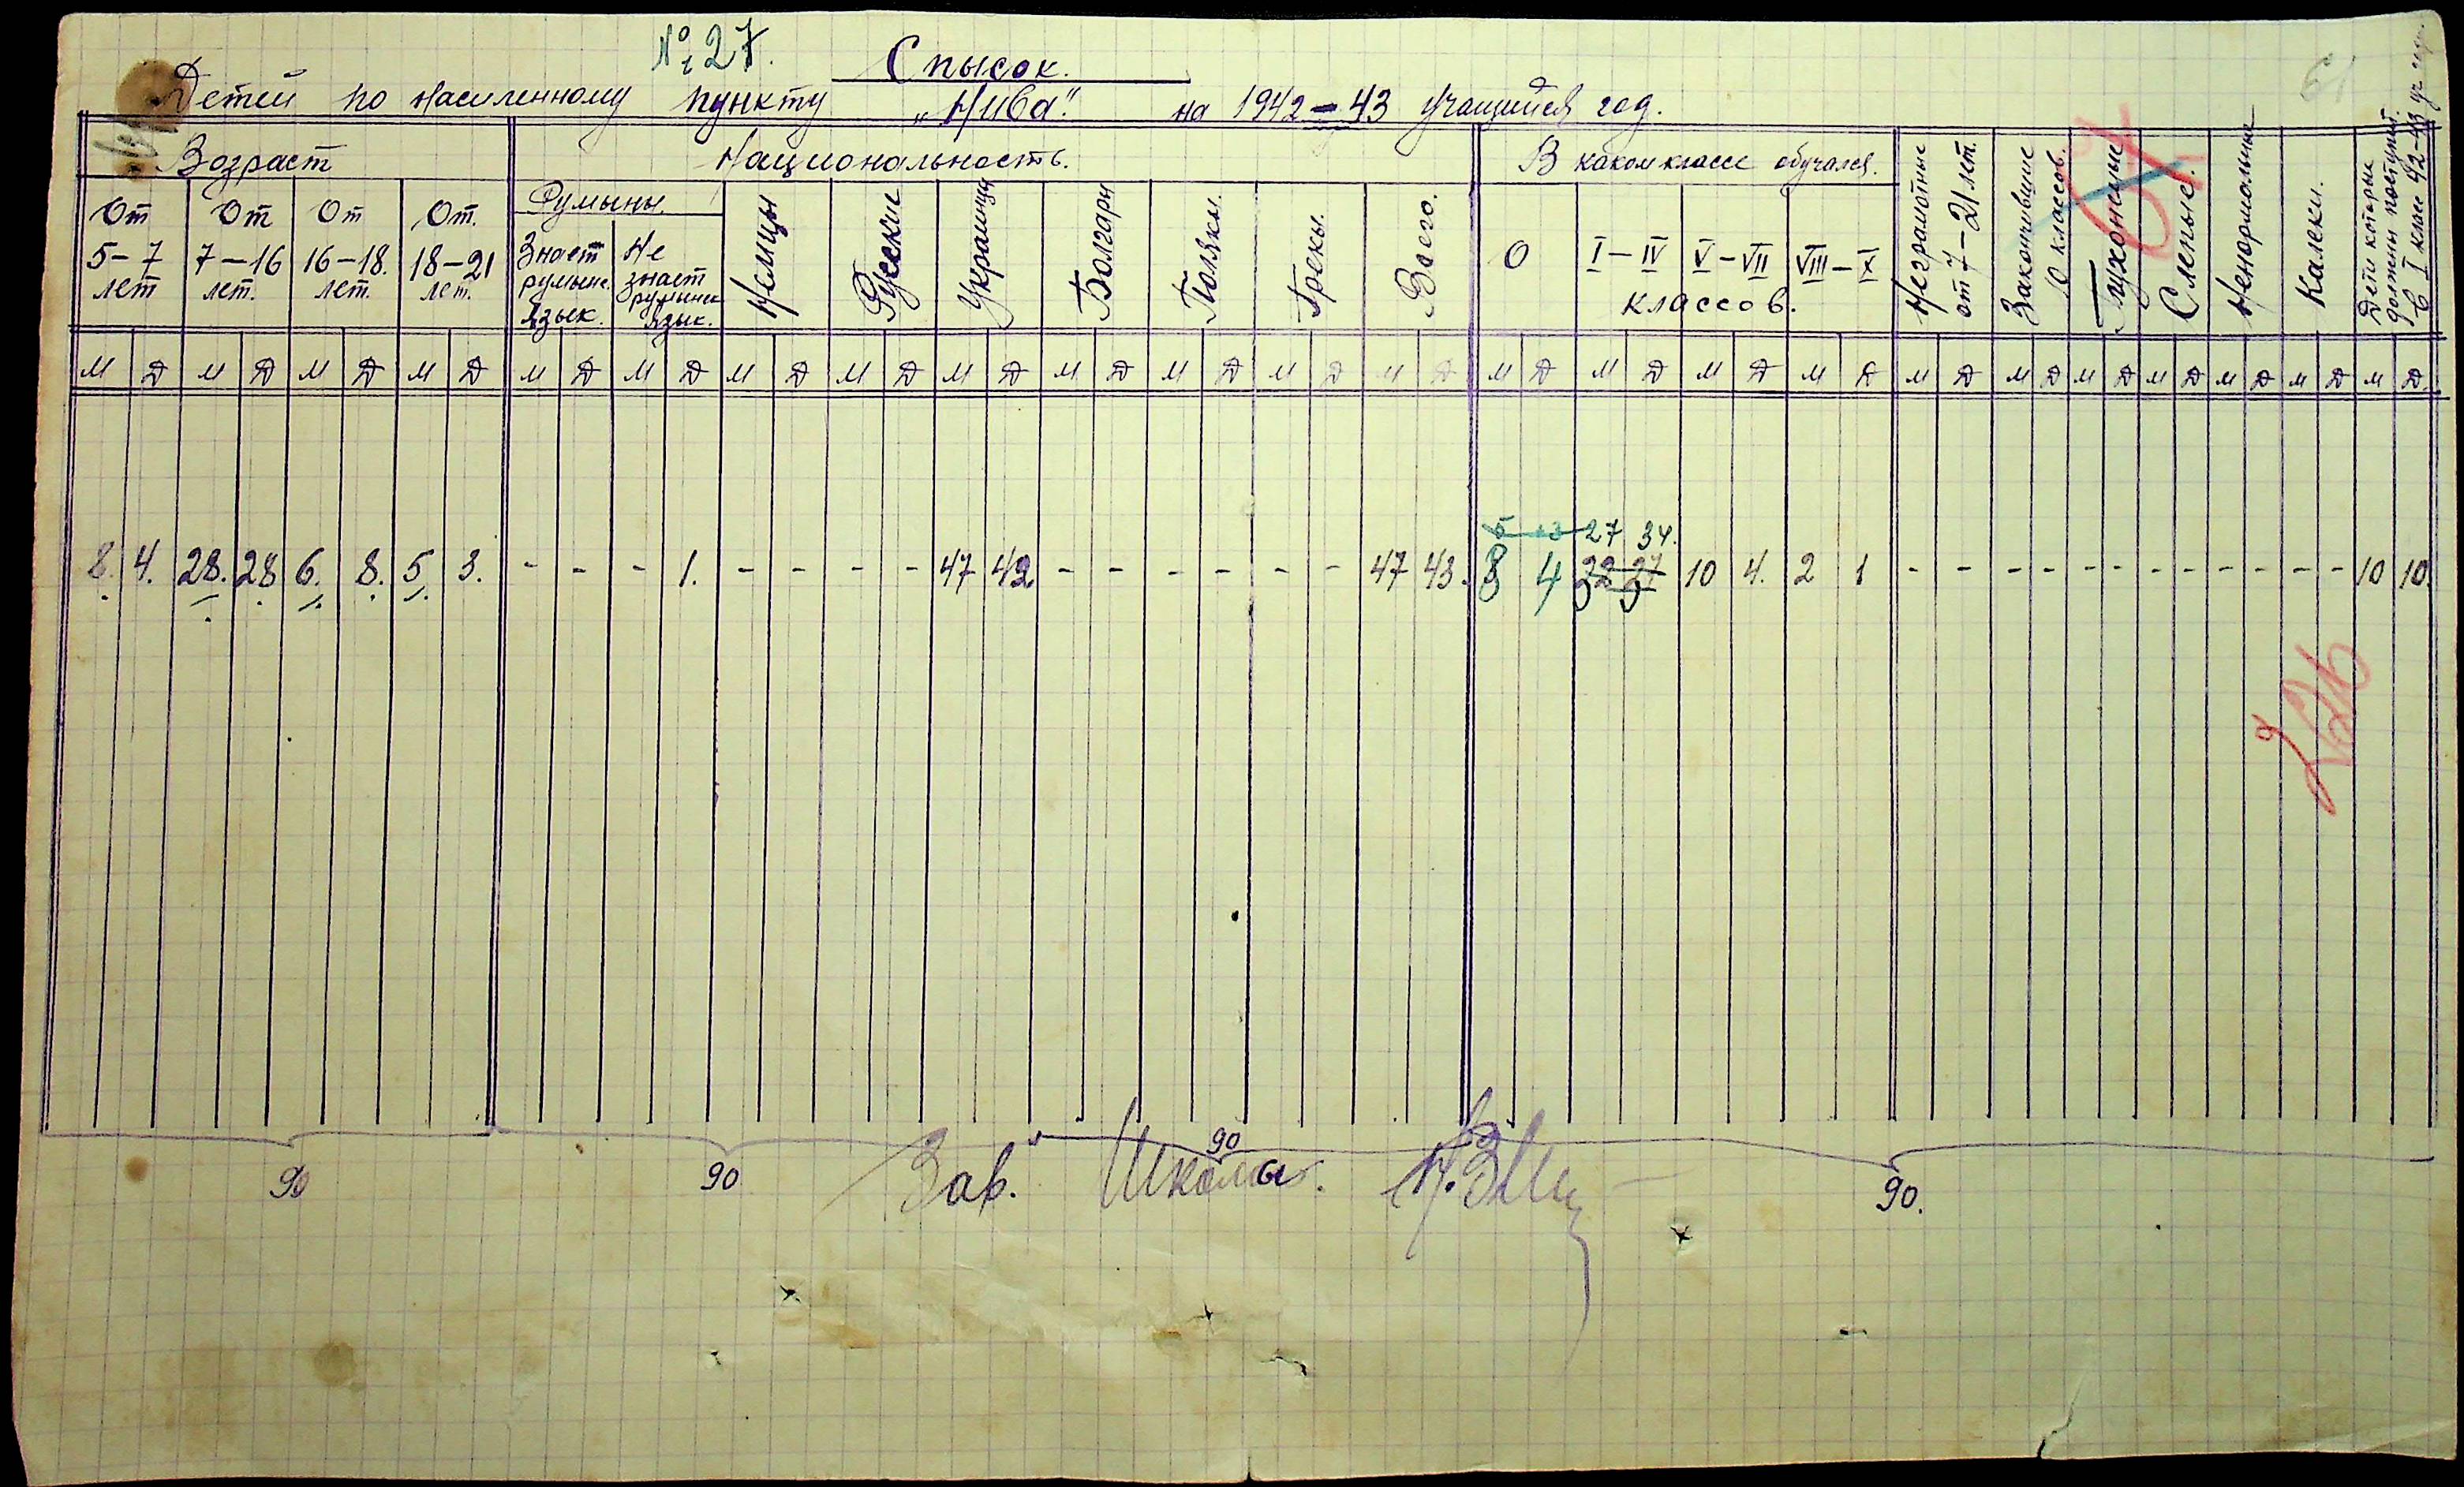 № 27.
Спысок.
61
Детей по населенному пункту „Нива" на 1942-43 учащийся год.
Возраст
Национальность.
В каком классе обучался.
От 5-7 лет
От 7-16 лет.
От 16-18. лет.
От. 18-21 лет.
Румыны.
Знает румынс. язык.
Не знает румынск язык.
Немцы
Русские
Украинцы
Болгары
Поляки.
Греки.
Всего.
0
I-IV
V-VII
VIII-X
классов.
Неграмотные от 7-21 лет.
Закончившие 10 классов.
Глухонемые
Слепые.
Ненормальные
Калеки.
Дети которые должны поступит. в I класс 42-43 уч.
м Д м Д м Д м Д м Д м Д м Д м Д м Д м Д м Д м Д м Д м Д м Д м Д м Д м Д м Д м Д м Д м Д м Д м Д.
5 27 34.
8. 4. 28. 28 6. 8. 5. 3. - - - 1. - - - - 47 42. - - - - - - 47 43. 8 4 22 27 10 4. 2 1 - - - - - - - - - - - - 10 10.
90
90
90
90.
Зав. Школы.